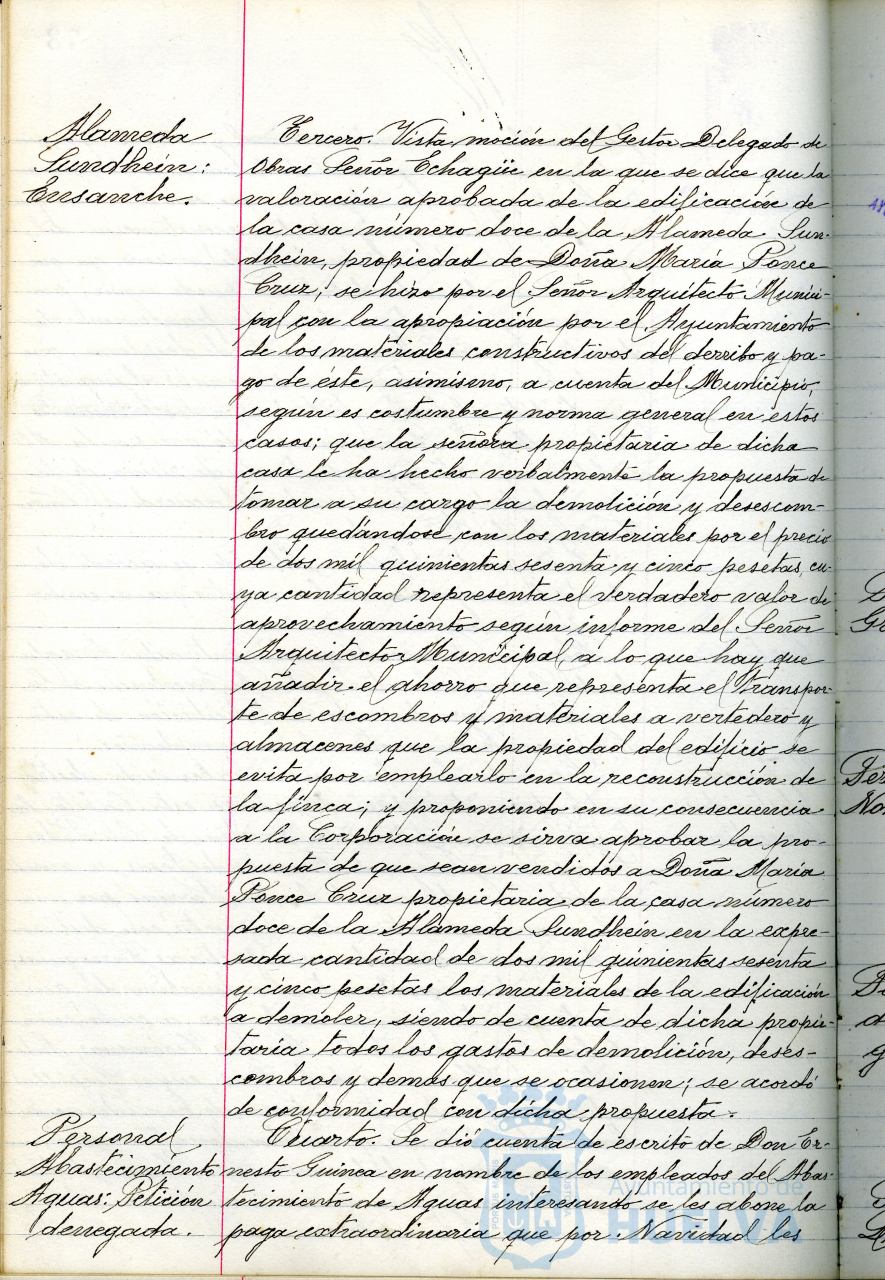 Alameda
Sundhein:
Ensanche.
Tercero. Vista moción del Gestor Delegado de
Obras Señor Echagüe en la que se dice que la
valoración aprobada de la edificación de
la casa número doce de la Alameda Sun-
dhein, propiedad de Doña María Ponce
Cruz, se hizo por el Señor Arquitecto Munici-
pal con la apropiación por el Ayuntamiento
de los materiales constructivos del derribo y pa-
go de éste, asimismo, a cuenta del Municipio,
según es costumbre y norma general en estos
casos; que la señora propietaria de dicha
casa le ha hecho verbalmente la propuesta de
tomar a su cargo la demolición y desescom-
bro quedándose con los materiales por el precio
de dos mil quinientas sesenta y cinco pesetas, cu-
ya cantidad representa el verdadero valor de
aprovechamiento según informe del Señor
Arquitecto Municipal, a lo que hay que
añadir el ahorro que representa el transpor-
te de escombros y materiales a vertedero y
almacenes que la propiedad del edificio se
evita por emplearlo en la reconstrucción de
la finca; y proponiendo en su consecuencia
a la Corporación se sirva aprobar la pro-
puesta de que sean vendidos a Doña María
Ponce Cruz propietaria de la casa número
doce de la Alameda Sundhein en la expre-
sada cantidad de dos mil quinientas sesenta
y cinco pesetas los materiales de la edificación
a demoler, siendo de cuenta de dicha propie-
taria todos los gastos de demolición, deses-
combros y demás que se ocasionen; se acordó
de conformidad con dicha propuesta.
Personal
Abastecimiento
Aguas: Petición
denegada.
Cuarto. Se dió cuenta de escrito de Don Er-
nesto Guinea en nombre de los empleados del Abas-
tecimiento de Aguas interesando se les abone la
paga extraordinaria que por Navidad les
Ayuntamiento de
HUELVA